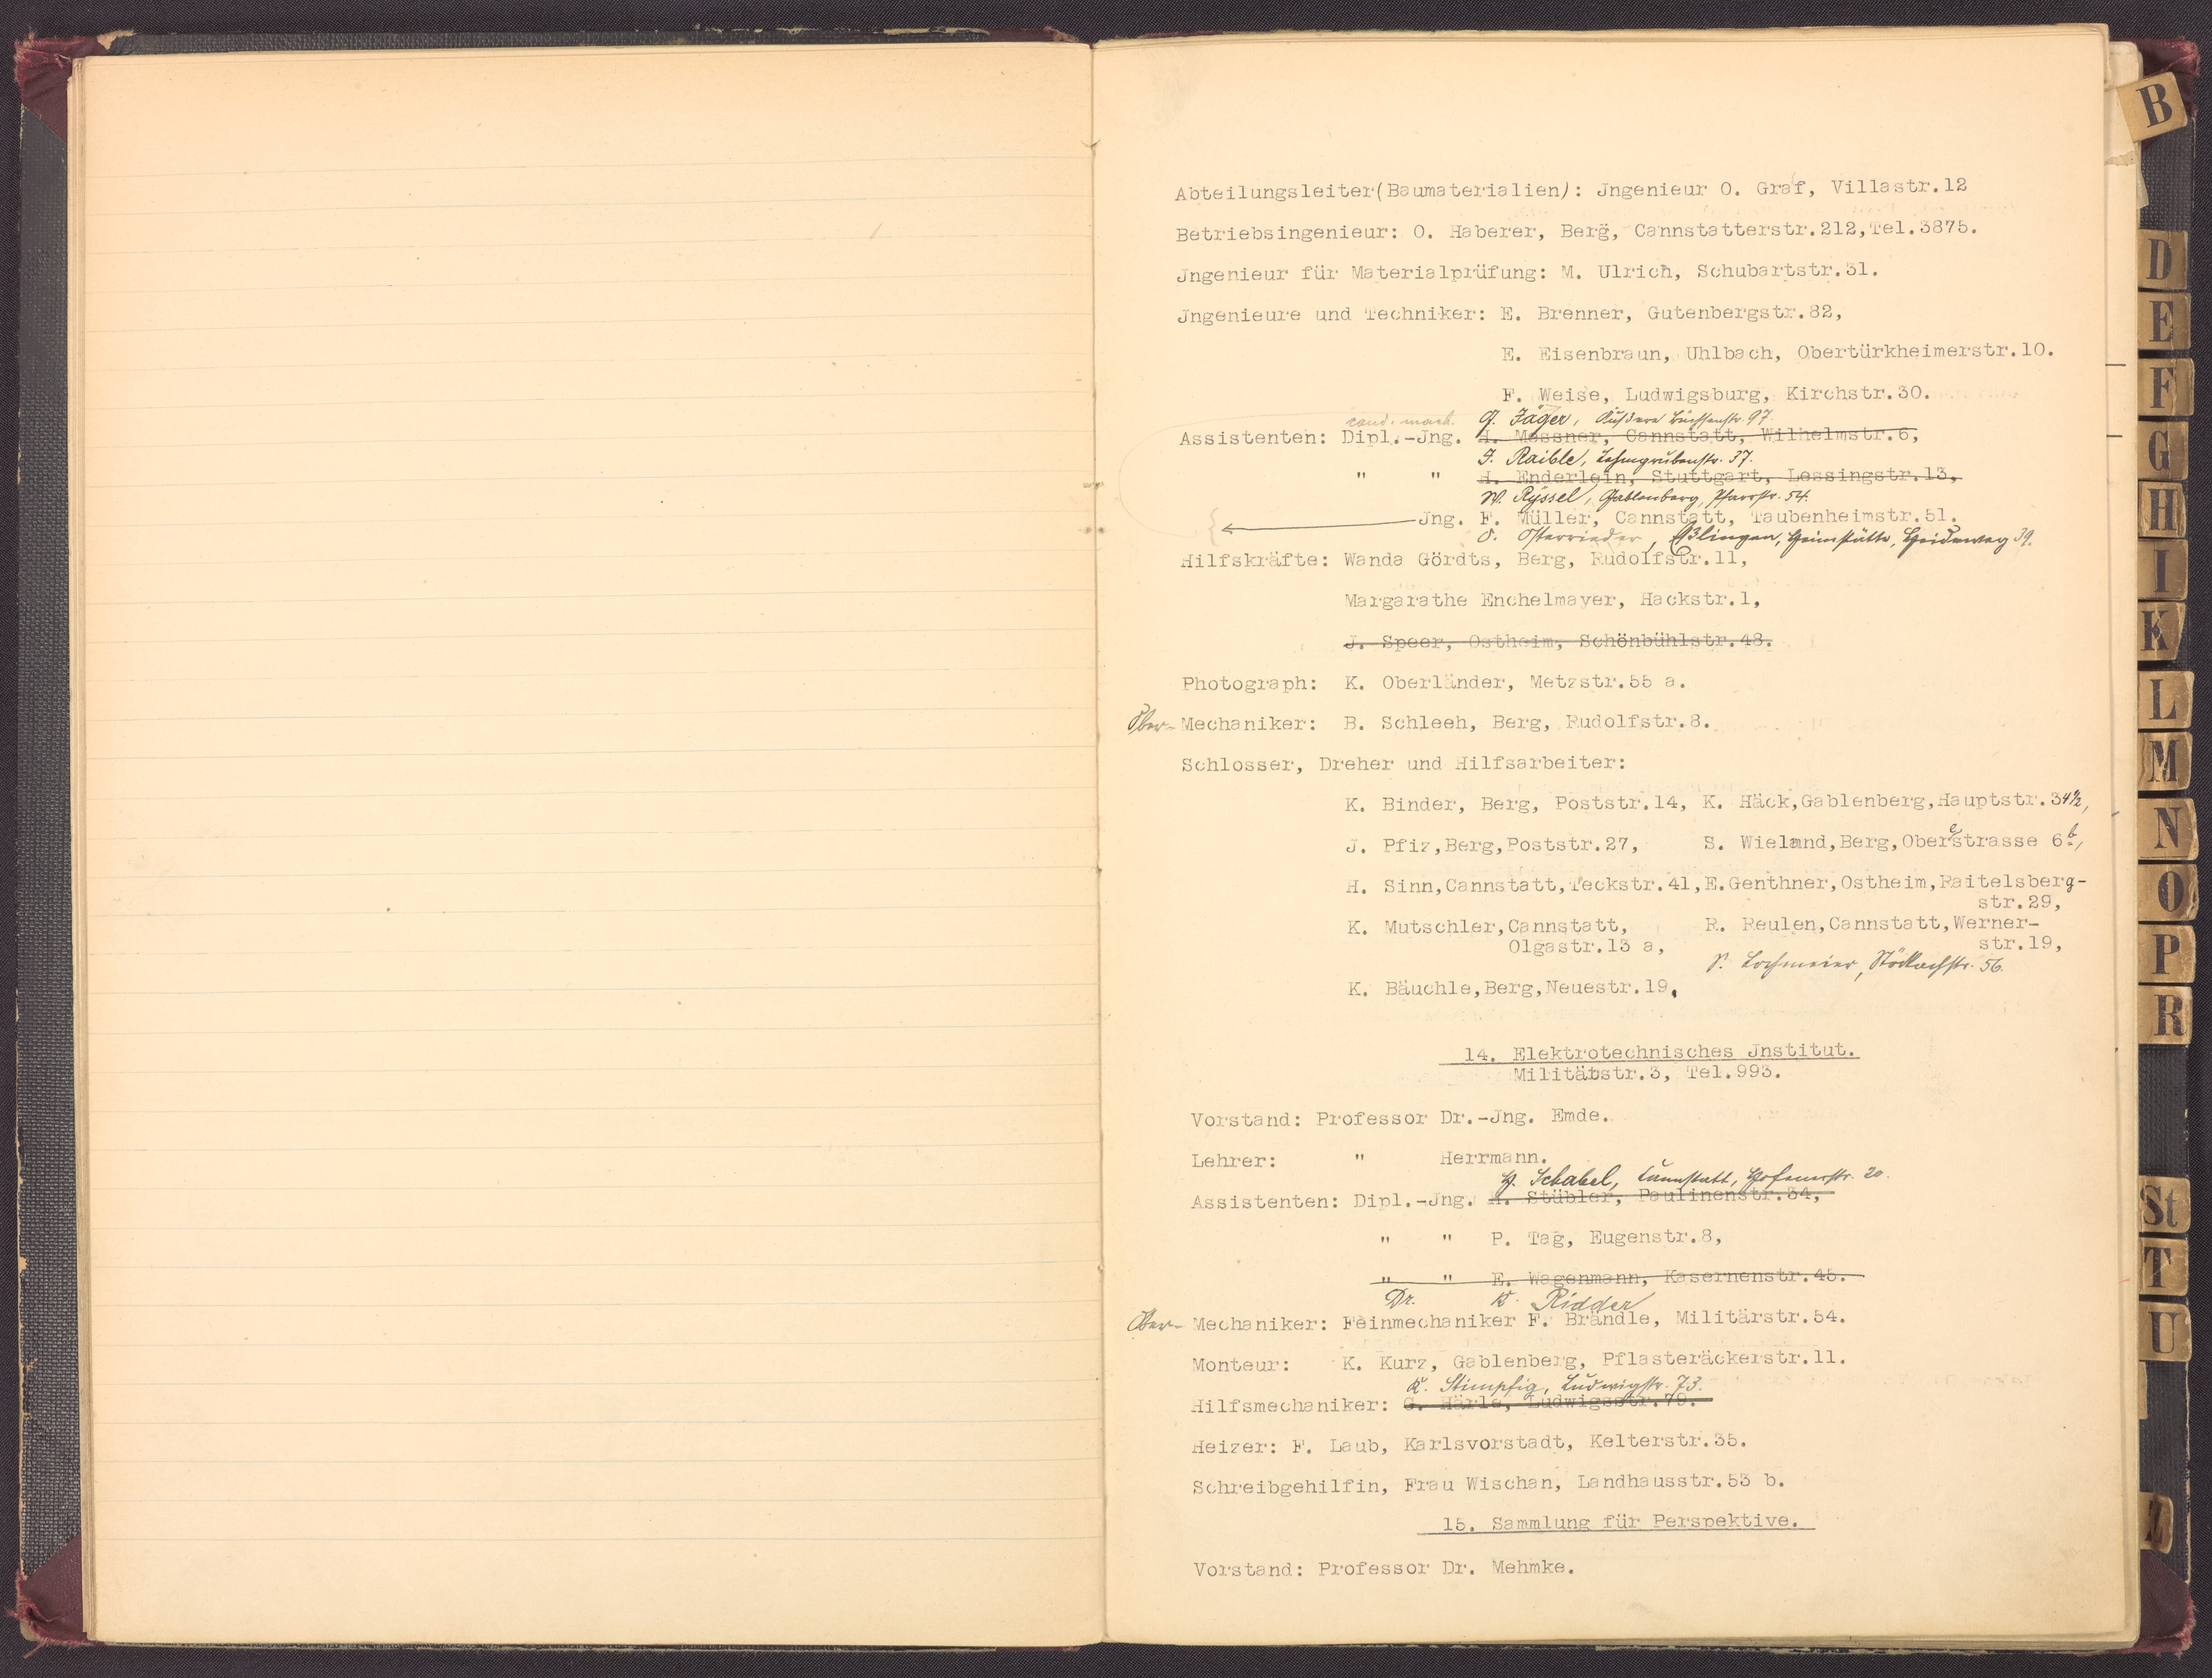 Abteilungsleiter(Baumaterialien): Jngenieur O. Graf, Villastr.12
Betriebsingenieur: O. Haberer, Berg, Cannstatterstr.212,Tel.3875.
Jngenieur für Materialprüfung: M. Ulrich, Schubartstr.31.
Jngenieure und Techniker: E. Brenner, Gutenbergstr.82,
E. Eisenbraun, Uhlbach, Obertürkheimerstr.10.
F. Weise, Ludwigsburg, Kirchstr.30.
cand. mach. G. Jäger, 97.
Assistenten: Dipl.-Jng. A. Messner, Cannstatt, Wilhelmstr.6,
J. Raible, Lehmgrubenstr. 37.
" " H. Enderlein, Stuttgart, Lessingstr.13,
W. Ryssel, Gablenberg, Pfarrstr. 54.
Jng. F. Müller, Cannstatt, Taubenheimstr.51.
O. Osterrieder, Eßlingen, Heimstätte, Heideweg 39.
Hilfskräfte: Wanda Gördts, Berg, Rudolfstr.11,
Margarathe Enchelmayer, Hackstr.1,
J. Speer, Ostheim, Schönbühlstr.48.
Photograph: K. Oberländer, Metzstr.55 a.
Ober- Mechaniker: B. Schleeh, Berg, Rudolfstr.8.
Schlosser, Dreher und Hilfsarbeiter:
K. Binder, Berg, Poststr.14, K. Häck,Gablenberg,Hauptstr.34½,
J. Pfiz,Berg,Poststr.27, S. Wieland,Berg,Oberestrasse 6b,
H. Sinn,Cannstatt,Teckstr.41,E.Genthner,Ostheim,Raitelsberg-
str.29,
K. Mutschler,Cannstatt, R. Reulen,Cannstatt,Werner-
Olgastr.13 a, str.19,
P. Lochmeier, Stöckachstr. 56.
K. Bäuchle,Berg,Neuestr.19.
14. Elektrotechnisches Jnstitut.
Militärstr.3, Tel.993.
Vorstand: Professor Dr.-Jng. Emde.
Lehrer: " Herrmann.
H. Schabel, Cannstatt, Hofenerstr. 20.
Assistenten: Dipl.-Jng. A. Stübler, Paulinenstr.34,
" " P. Tag, Eugenstr.8,
" " E. Wagenmann, Kasernenstr.45.
Dr. K. Ridder
Ober- Mechaniker: Feinmechaniker F. Brändle, Militärstr.54.
Monteur: K. Kurz, Gablenberg, Pflasteräckerstr.11.
K. Stimpfig, Ludwigstr. 73.
Hilfsmechaniker: G. Härle, Ludwigsstr.79.
Heizer: F. Laub, Karlsvorstadt, Kelterstr.35.
Schreibgehilfin, Frau Wischan, Landhausstr.53 b.
15. Sammlung für Perspektive.
Vorstand: Professor Dr. Mehmke.
B
D
E
F
G
H
I
K
L
M
N
O
P
R
St
T
U
Z